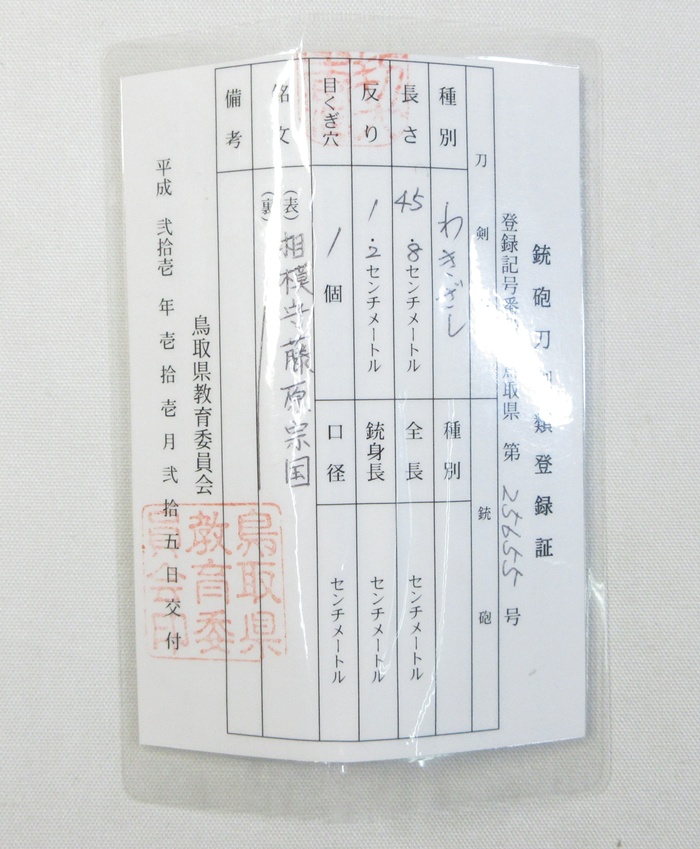 銃砲刀 類登録証
登録記号番 取県 第 25655 号
刀剣
銃砲
種別 わきざし 種別
長さ 45.8センチメートル 全長 センチメートル
反り 1.2センチメートル 銃身長 センチメートル
目くぎ穴 1個 口径 センチメートル
銘文 (表) 相模守藤原宗国
(裏)
備考
鳥取県教育委員会
平成 弐拾壱 年 壱拾壱月 弐拾五日交付
鳥取県
教育委
員会印